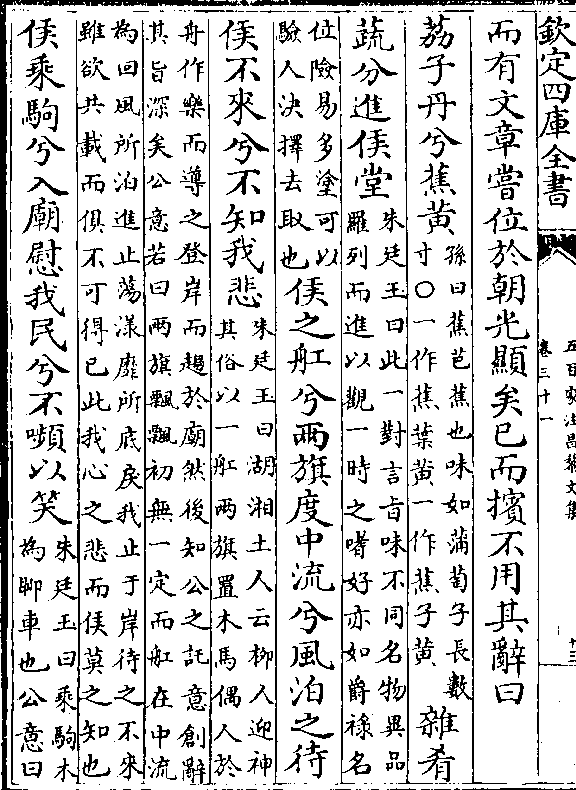 欽定四庫全書
五百家注昌黎文集
卷三十一
十三
而有文章嘗位於朝光顯矣已而擯不用其辭曰
荔子丹兮蕉黄
孫曰蕉芭蕉也味如蒲萄子長數
寸○一作蕉葉黄一作蕉子黄
雜肴
蔬分進侯堂
朱廷玉曰此一對言旨味不同名物異品
羅列而進以觀一時之嗜好亦如爵祿名
位險易多塗可以
驗人決擇去取也
侯之舡兮兩旗度中流兮風泊之待
侯不來兮不知我悲
朱廷玉曰湖湘土人云柳人迎神
其俗以一舡兩旗置木馬偶人於
舟作樂而導之登岸而趨於廟然後知公之託意創辭
其旨深矣公意若曰兩旗飄飄初無一定而舡在中流
為回風所泊進止蕩漾靡所底戾我止于岸待之不來
雖欲共載而俱不可得已此我心之悲而侯莫之知也
侯乘駒兮入廟慰我民兮不嚬以笑
朱廷玉曰乘駒木
為聊車也公意曰